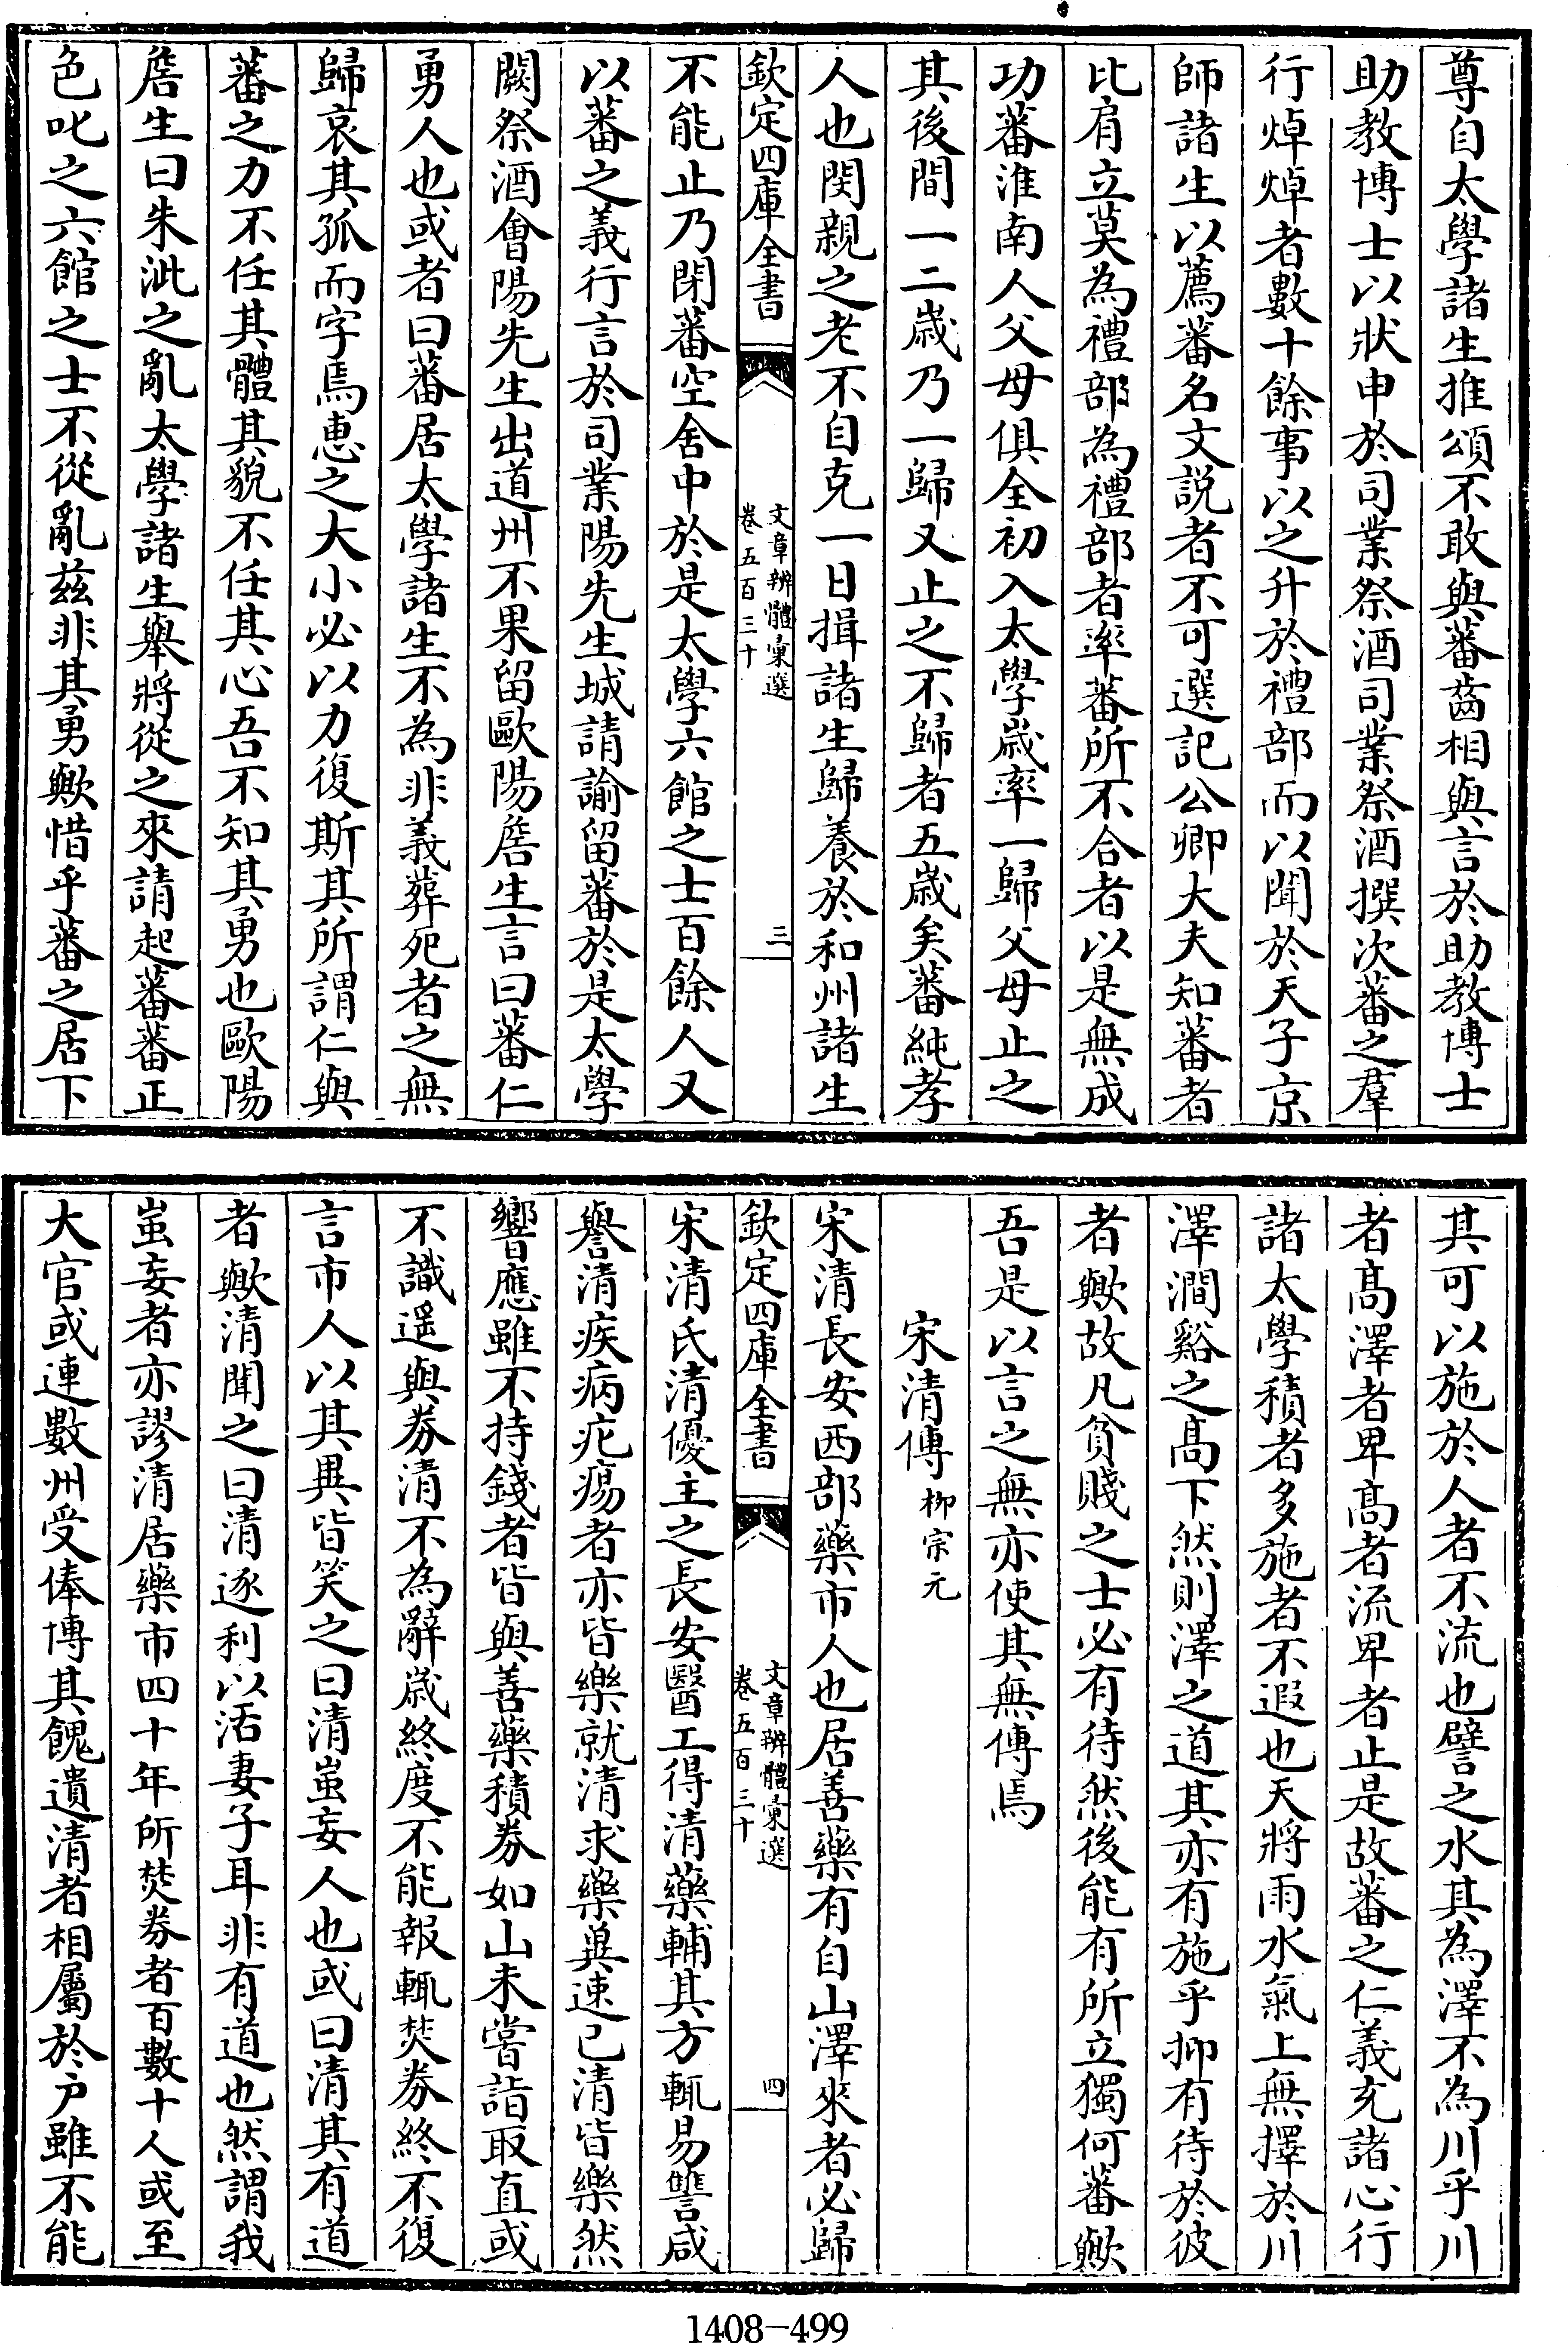 尊自太學諸生推頌不敢與蕃齒相與言於助教博士
助教博士以狀申於司業祭酒司業祭酒撰次蕃之羣
行焯焯者數十餘事以之升於禮部而以聞於天子京
師諸生以薦蕃名文説者不可選記公卿大夫知蕃者
比肩立莫為禮部為禮部者率蕃所不合者以是無成
功蕃淮南人父母俱全初入太學歲率一歸父母止之
其後間一二歲乃一歸又止之不歸者五歲矣蕃純孝
人也閔親之老不自克一日揖諸生歸養於和州諸生
欽定四庫全書
文章辨體彙選
卷五百三十
三
不能止乃閉蕃空舍中於是太學六館之士百餘人又
以蕃之義行言於司業陽先生城請諭留蕃於是太學
闕祭酒會陽先生出道州不果留歐陽詹生言曰蕃仁
勇人也或者曰蕃居太學諸生不為非義葬死者之無
歸哀其孤而字焉惠之大小必以力復斯其所謂仁與
蕃之力不任其體其貌不任其心吾不知其勇也歐陽
詹生曰朱泚之亂太學諸生舉將從之來請起蕃蕃正
色叱之六館之士不從亂兹非其勇歟惜乎蕃之居下
其可以施於人者不流也譬之水其為澤不為川乎川
者髙澤者卑髙者流卑者止是故蕃之仁義充諸心行
諸太學積者多施者不遐也天將雨水氣上無擇於川
澤澗谿之髙下然則澤之道其亦有施乎抑有待於彼
者歟故凡貧賤之士必有待然後能有所立獨何蕃歟
吾是以言之無亦使其無傳焉
宋清傳 柳宗元
宋清長安西部藥市人也居善藥有自山澤來者必歸
欽定四庫全書
文章辨體彙選
卷五百三十
四
宋清氏清優主之長安醫工得清藥輔其方輒易讐咸
譽清疾病疕瘍者亦皆樂就清求藥冀速已清皆樂然
響應雖不持錢者皆與善藥積券如山未嘗詣取直或
不識遥與券清不為辭歲終度不能報輒焚券終不復
言市人以其異皆笑之曰清蚩妄人也或曰清其有道
者歟清聞之曰清逐利以活妻子耳非有道也然謂我
蚩妄者亦謬清居藥市四十年所焚券者百數十人或至
大官或連數州受俸博其餽遺清者相屬於户雖不能
1408-499